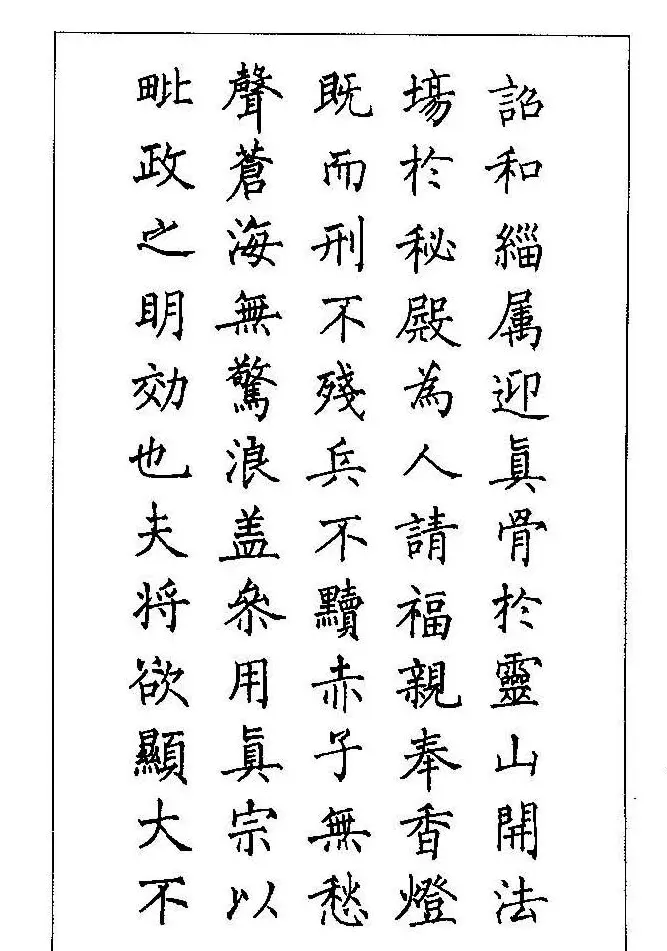 詔和緇属迎眞骨於靈山開法
場於秘殿為人請福親奉香燈
既而刑不殘兵不黷赤子無愁
聲蒼海無驚浪盖叅用眞宗以
毗政之明効也夫将欲顯大不